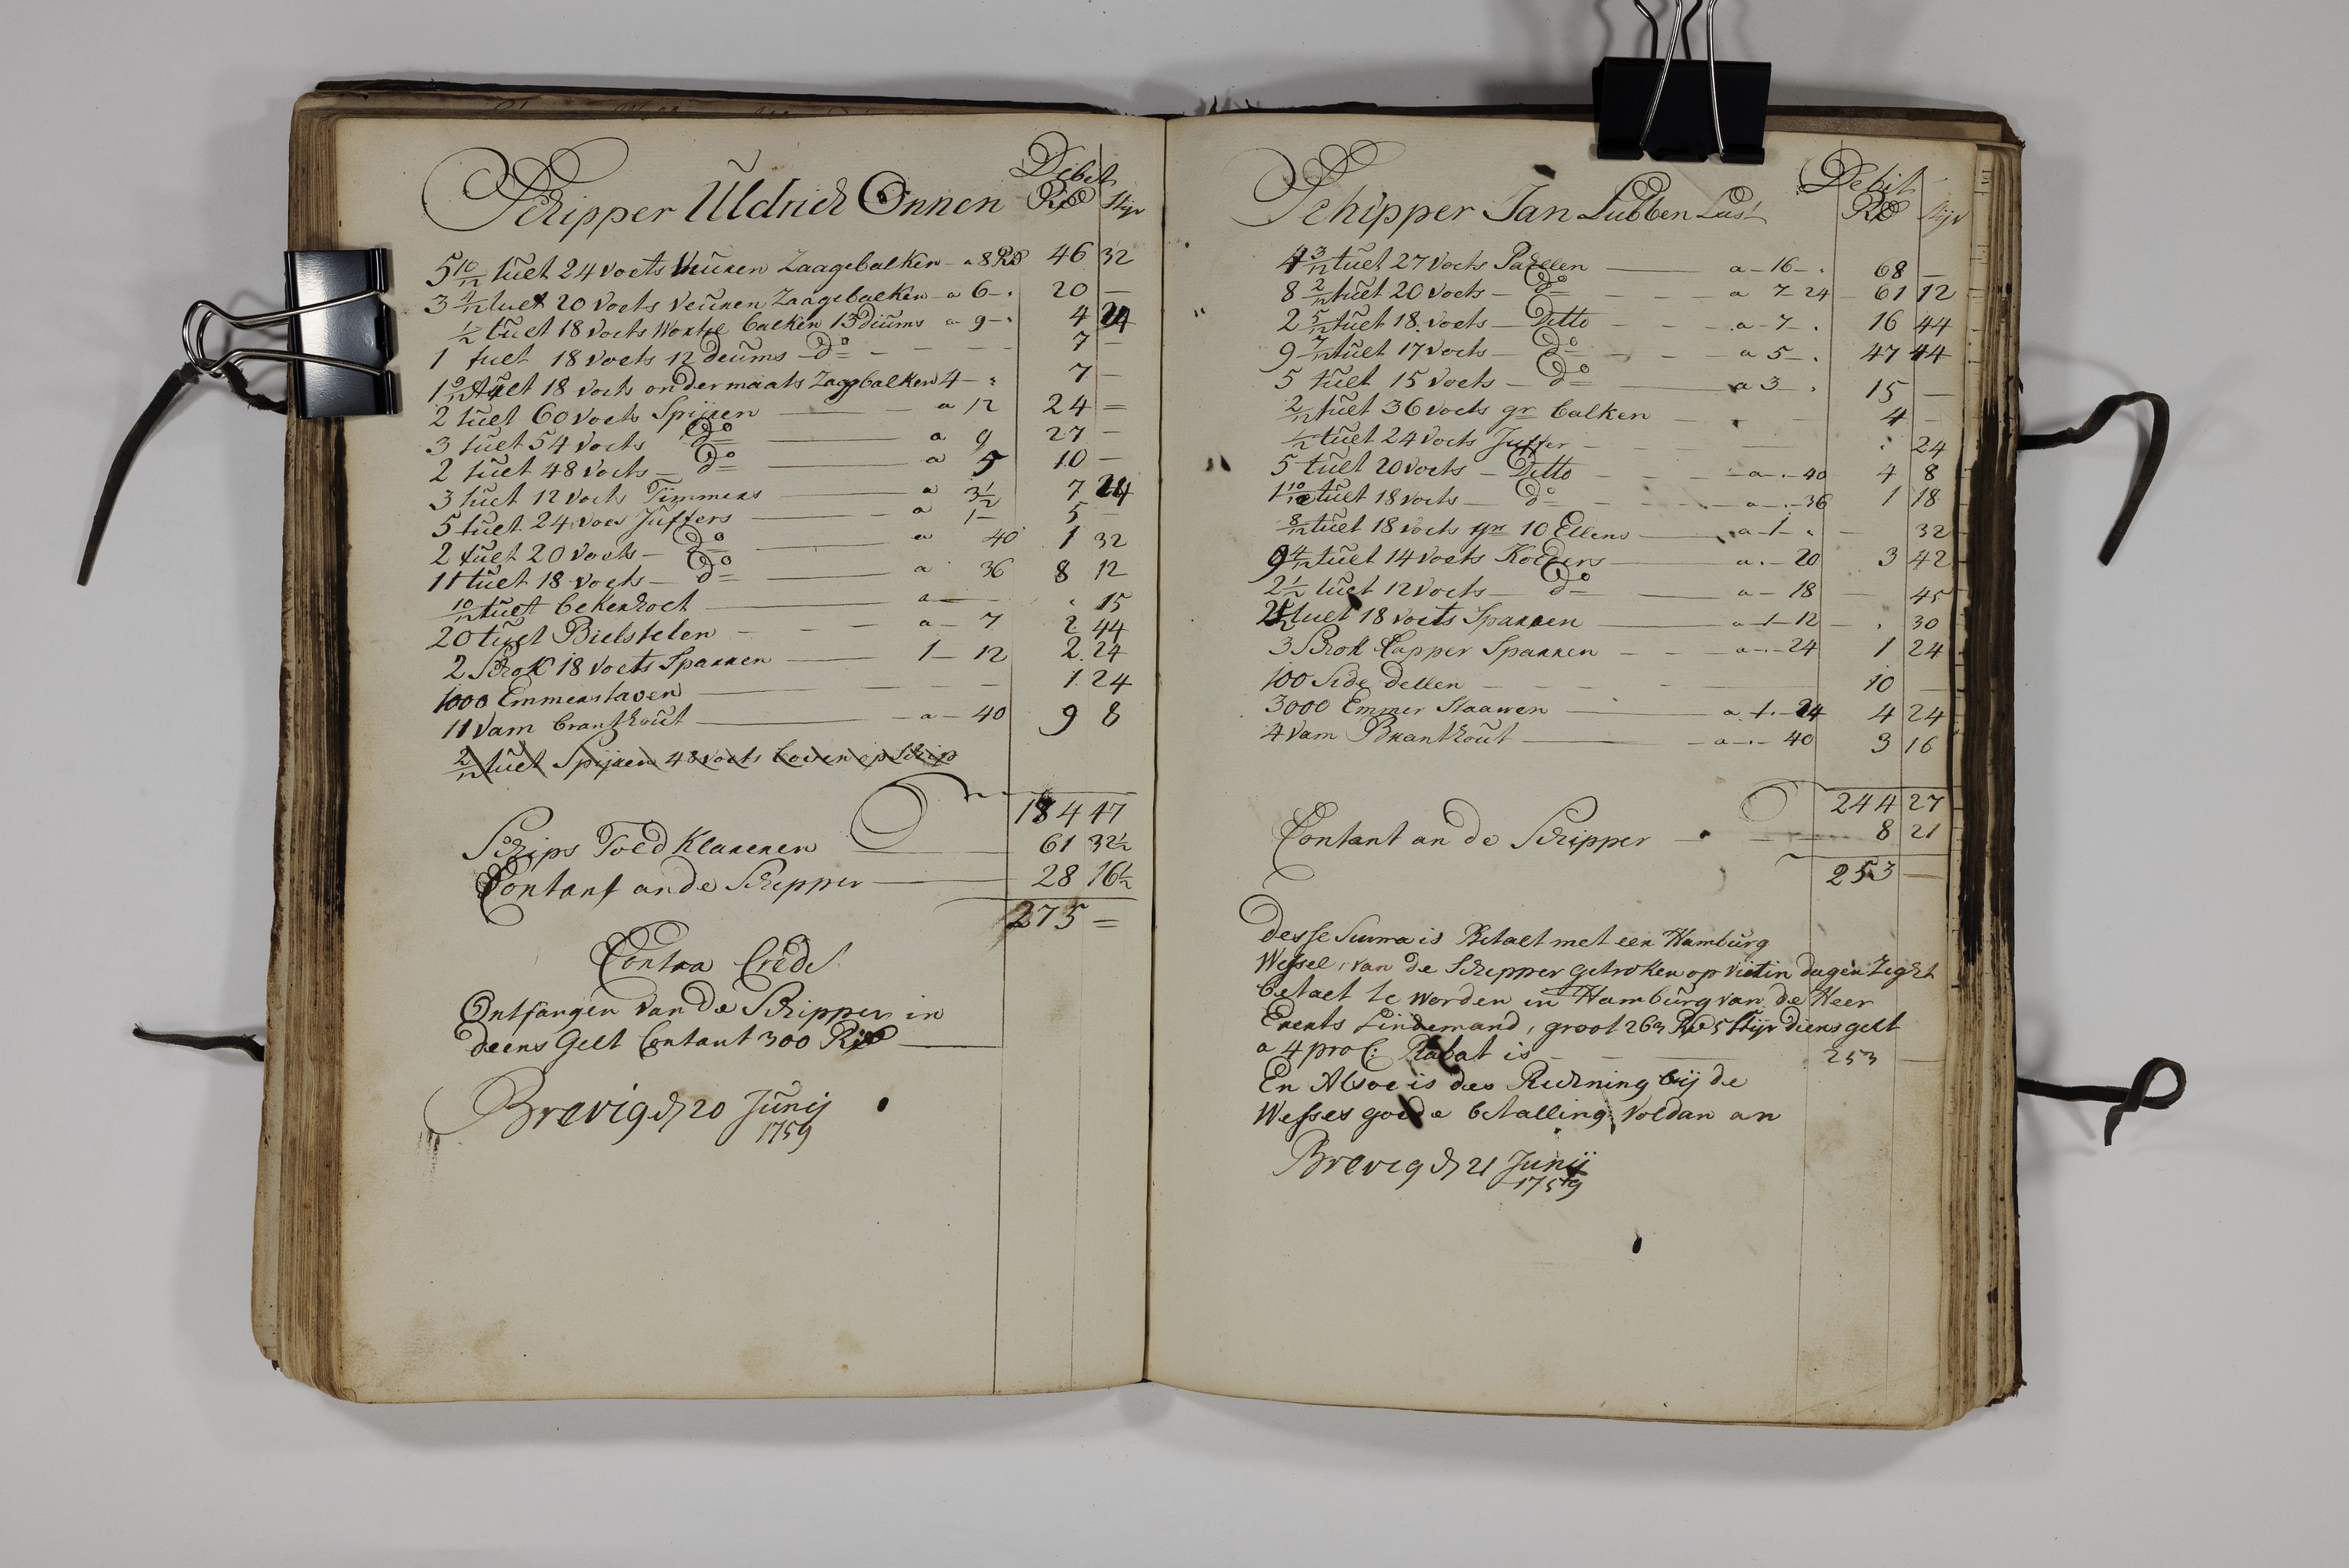 Debet
Schipper Uldrich Onnen Rd Stijv
5 10/12 tuet 24 voets Vuuren Zaagebalken - a 8 Rd 46 32
3 4/12 tuet 20 voets Veuren Zaagebalken - a 6 - . 20 —
1/2 tuet 18 voets Wortel balken 13 diums - a 9 - . 4 24
1 tuet 18 voets 12 deums - do - 7 —
1 9/12 tuet 18 voets ondermaats Zaagbalken 4 - . 7 —
2 tuet 60 voets Spijren — a 12 24 =
3 tuet 54 voets do — a 9 27 —
2 tuet 48 voets - do — a 5 10 —
3 tuet 12 voets Timmers — a 3 1/2 7 24
5 tuet 24 voes Juffers — a 1 - 5 —
2 tuet 20 voets - do — a 40 1 32
11 tuet 18 voets - do — a 36 8 12
10/12 tuet bekenhoet — a — . 15
20 tuet Bielstelen - - - a - 7 2 44
2 Schok 18 voets Sparren — 1 - 12 2 24
1000 Emmerstaven — 1 24
11 Vam branthout — a - 40 9 8
2/12 tuet Spijren 48 voets boven op Schip
184 47
Schips Toed Klareren — 61 32 1/2
Contant an de Schipper — 28 16 1/2
275 =
Contra Credt
Ontfangen van de Schipper in
deens Gelt Contant 300 Rd —
Brevig d 20 Junij
1759
Debit
Schipper Jan Lubben Last Rd Stijv
4 3/12 tuet 27 voets Pahllen — a - 16 - . 68 —
8 2/12 tuet 20 voets - do - - - a 7 - 24 - 61 12
2 5/12 tuet 18 voets - Ditto - - - a - 7 . 16 44
9 7/12 tuet 17 voets - do - - - a 5 - . 47 44
5 tuet 15 voets - do — a 3 . 15 —
2/12 tuet 36 voets gr balken - . 4 —
1/2 tuet 24 voets Juffer - . 24
5 tuet 20 voets - Ditto - - - a . - 40 4 8
1 10/12 tuet 18 voets - do - - - a . - 36 1 18
8/12 tuet 18 voets gr 10 Ellens — a - 1 - . - 32
9 4/12 tuet 14 voets Kodfers — a . - 20 3 42
2 1/2 tuet 12 voets - do — a - 18 - 45
tuet 18 voets Sparren — a 1 - 12 - . 30
3 Schok Capper Sparren - - - a . - 24 1 24
100 Side dellen - - - 10 —
3000 Emmer Staawen — a 1. - 24 4 24
4 Vam Branthout — a - . - 40 3 16
244 27
Contant an de Schipper - - 8 21
253 —
Desse Suma is Betaelt met een Hamburg
Wessel, van de Schipper getroken op vietin dagen Zight
betaelt te worden in Hamburg van de Heer
Everts Lindemand, groot 263 Rd 5 Stijv diens gelt
a 4 pro C: Rabat is - - — 253 —
En Alsoe is des Rechning bij de
Wesses goede betalling voldan an
Brevig d 21 Junij
1759